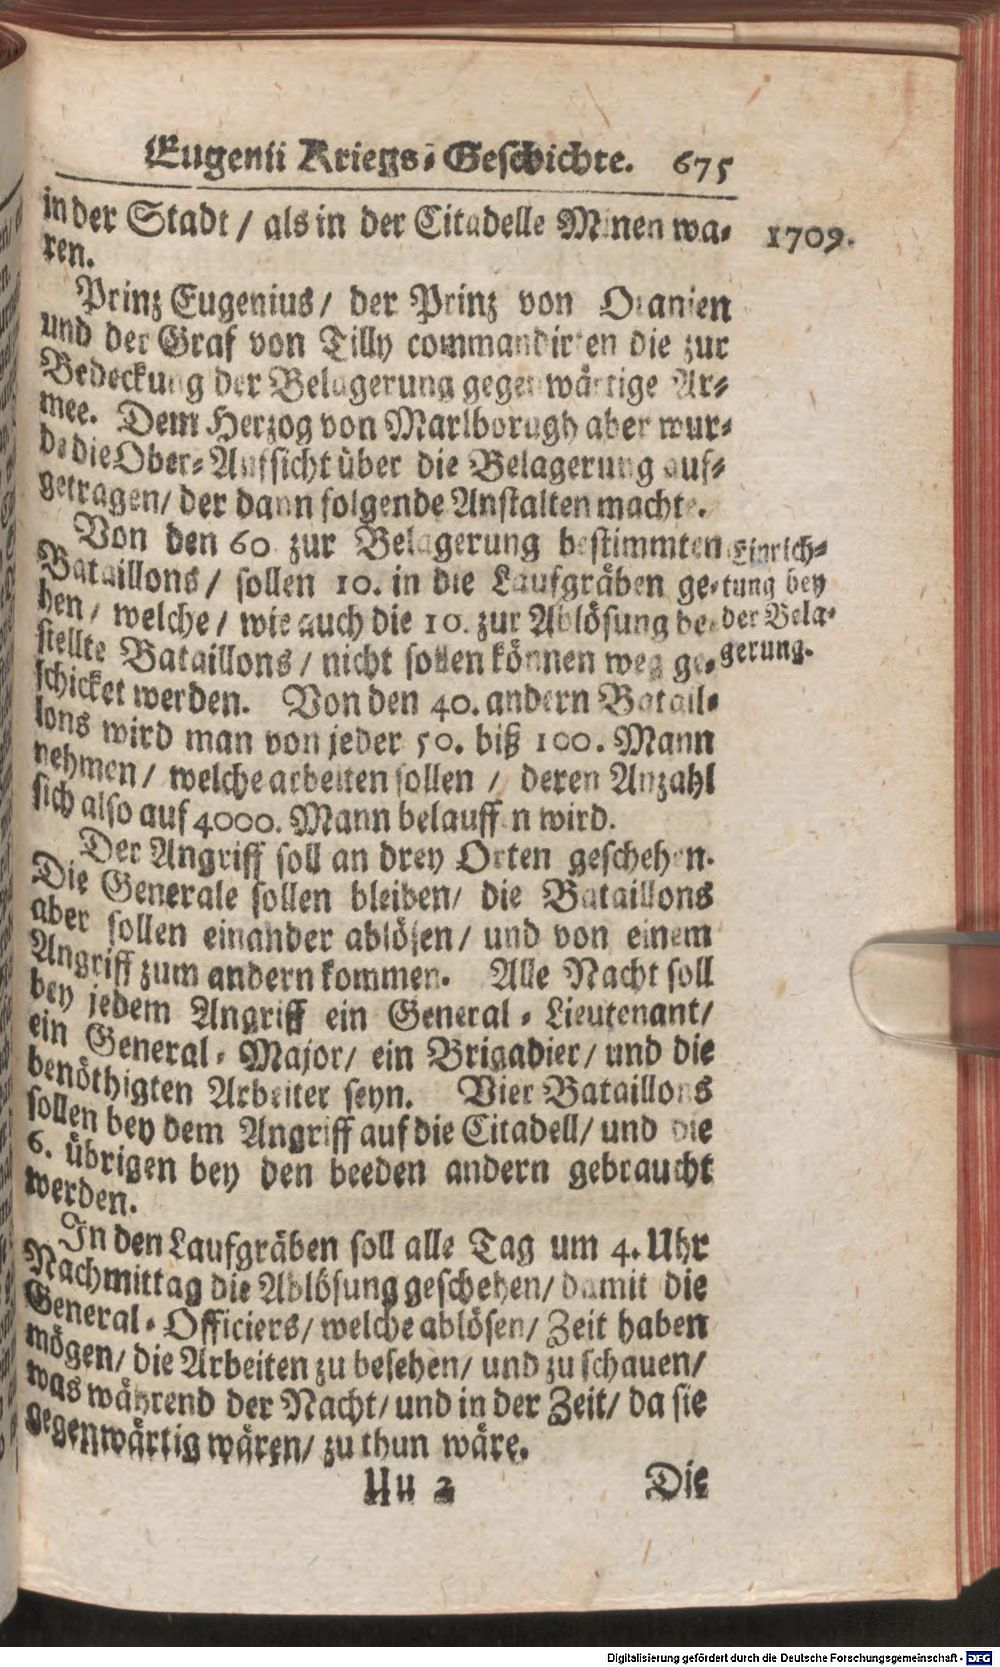 Eugenii Kriegs-Geschichte. 675
in der Stadt / als in der Citadelle Minen wa- 1709.
ren.
Prinz Eugenius / der Prinz von Oranien
und der Graf von Tilly commandirten die zur
Bedeckung der Belagerung gegenwärtige Ar-
mee. Dem Herzog von Marlborugh aber wur-
de die Ober-Aufsicht über die Belagerung auf-
getragen / der dann folgende Anstalten machte.
Von den 60 zur Belagerung bestimmten Einrich-
Bataillons / sollen 10. in die Laufgräben ge- tung bey
hen / welche / wie auch die 10. zur Ablösung be- der Bela-
stellte Bataillons / nicht sollen können weg ge- gerung.
schicket werden. Von den 40. andern Batail-
lons wird man von jeder 50. biß 100. Mann
nehmen / welche arbeiten sollen / deren Anzahl
sich also auf 4000. Mann belauffen wird.
Der Angriff soll an drey Orten geschehen.
Die Generale sollen bleiben / die Bataillons
aber sollen einander ablösen / und von einem
Angriff zum andern kommen. Alle Nacht soll
bey jedem Angriff ein General-Lieutenant /
ein General-Major / ein Brigadier / und die
benöthigten Arbeiter seyn. Vier Bataillons
sollen bey dem Angriff auf die Citadell / und die
6. übrigen bey den beeden andern gebraucht
werden.
In den Laufgräben soll alle Tag um 4. Uhr
Nachmittag die Ablösung geschehen / damit die
General-Officiers / welche ablösen / Zeit haben
mögen / die Arbeiten zu besehen / und zu schauen /
was während der Nacht / und in der Zeit / da sie
gegenwärtig wären / zu thun wäre.
Uu 2 Die
Digitalisierung gefördert durch die Deutsche Forschungsgemeinschaft - DFG